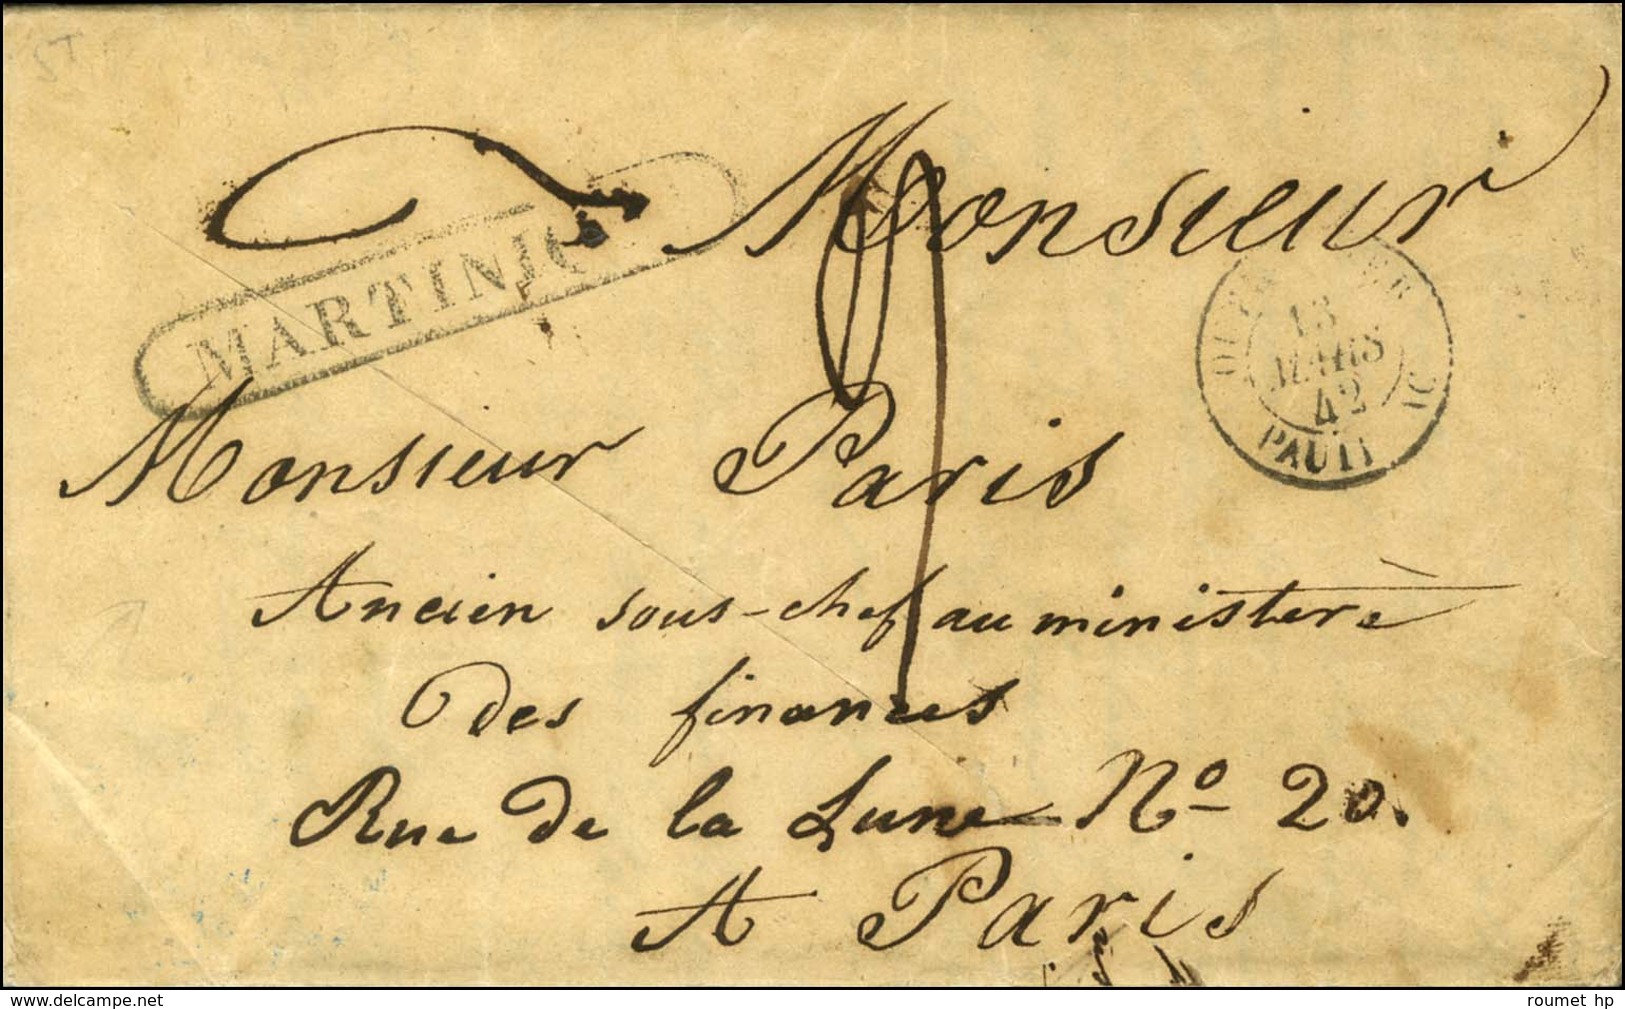 Monsieur
MARTINIQ
13
MARS
42
PAUIL
Monsieur Paris
Ancien sous-chef au ministère
des finances
Rue de la Lune Nº 20.
A Paris
delcampe.net
roumet hp